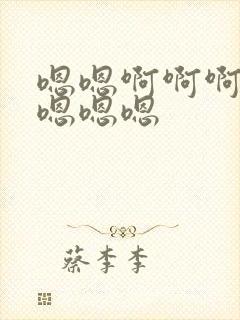 嗯嗯啊啊啊
嗯嗯嗯
蔡李李